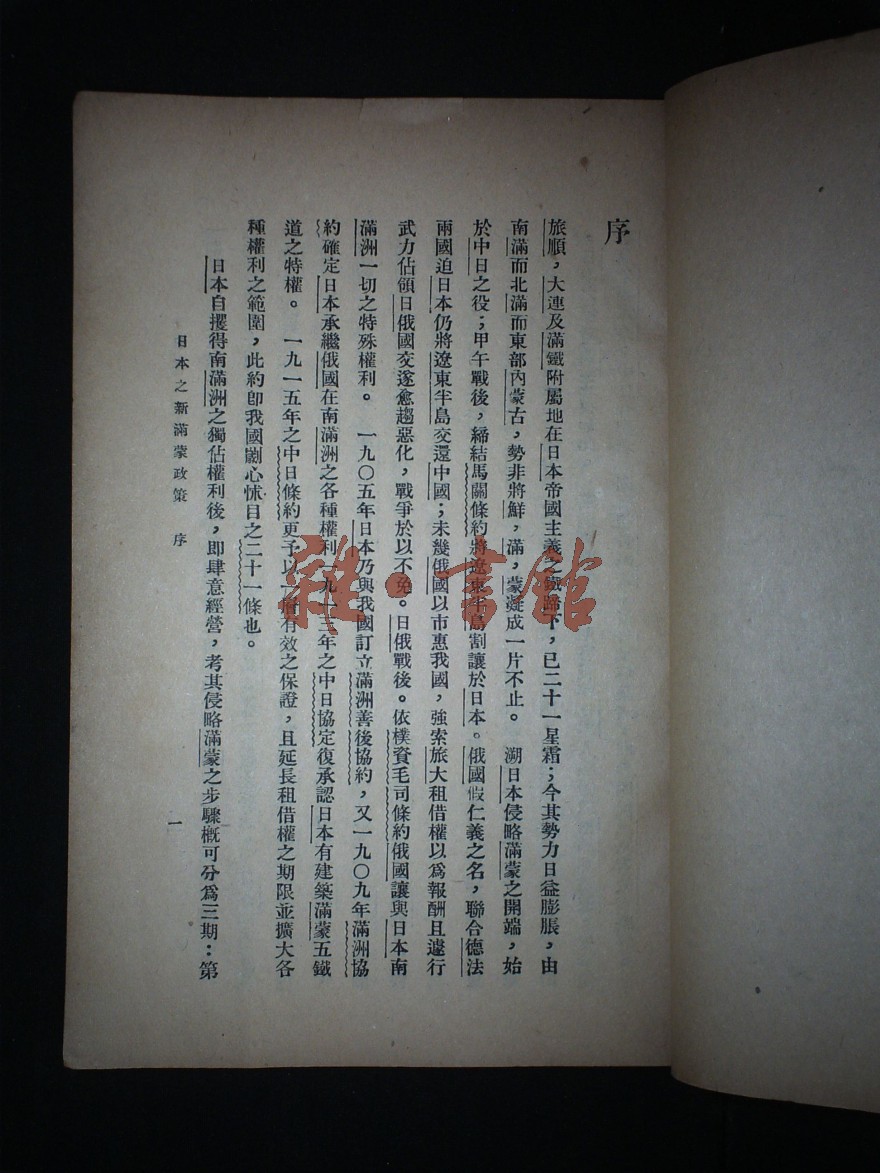 序
旅順，大連及滿鐵附屬地在日本帝國主義之鐵蹄下，已二十一星霜；今其勢力日益膨脹，由
南滿而北滿而東部內蒙古，勢非將鮮，滿，蒙凝成一片不止。溯日本侵略滿蒙之開端，始
於中日之役；甲午戰後，締結馬關條約將遼東半島割讓於日本。俄國假仁義之名，聯合德法
兩國迫日本仍將遼東半島交還中國；未幾俄國以市惠我國，強索旅大租借權以爲報酬且遽行
武力佔領日俄國交遂愈趨惡化，戰爭於以不免。日俄戰後。依樸資毛司條約俄國讓與日本南
滿洲一切之特殊權利。一九〇五年日本乃與我國訂立滿洲善後協約，又一九〇九年滿洲協
約確定日本承繼俄國在南滿洲之各種權利一九一三年之中日協定復承認日本有建築滿蒙五鐵
道之特權。一九一五年之中日條約更予以一層有效之保證，且延長租借權之期限並擴大各
種權利之範圍，此約卽我國劌心怵目之二十一條也。
日本自攫得南滿洲之獨佔權利後，即肆意經營，考其侵略滿蒙之步驟概可分爲三期：第
日本之新滿蒙政策 序
一
雜·書館